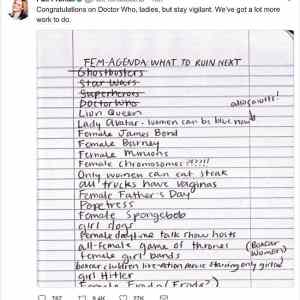 Congratulations on Doctor Who, ladies, but stay vigilant. We've got a lot more
work to do.
FEM-AGENDA: WHAT TO RUIN NEXT
Ghostbusters
Star Wars
Superheroes
Doctor Who
Lion Queen
Lady Avatar - women can be blue now
Female James Bond
Female Barney
Female Minions
Female Chromosomes?!!!!
Only women can eat steak
all trucks have vaginas
Female Father's Day
Popetress
Female Spongebob
girl dogs
Female daytime talk show hosts
all-female game of thrones
female girl bands
(Boxcar
Women)
boxcar children live-action movie starring only girls
girl Hitler